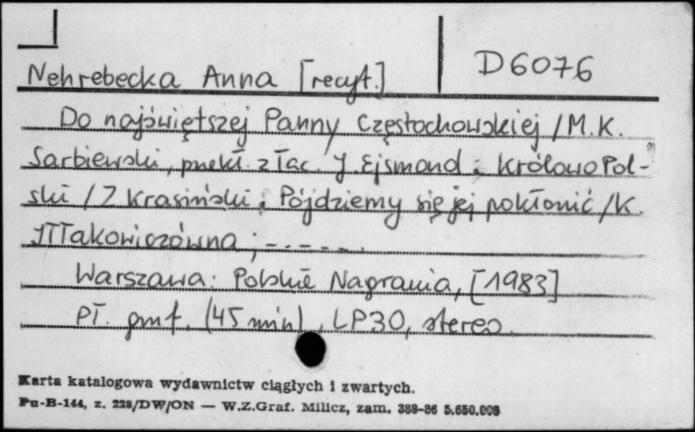 D6076
Nehrebecka Anna [recyt.]
Do najświętszej Panny Częstochowskiej /M.K.
Sarbiewski, przekł. z łac. J. Ejsmond; Królowo Pol-
ski /Z Krasiński; Pójdziemy się jej pokłonić /K.
Iłłakowiczówna; -.-.-.-.
Warszawa: Polskie Nagrania, [1983]
Pł. gmf. (45 min), LP30, stereo.
Karta katalogowa wydawnictw ciągłych i zwartych.
Pu-B-144, z. 228/DW/ON — W.Z.Graf. Milicz, zam. 388-86 5.650.000